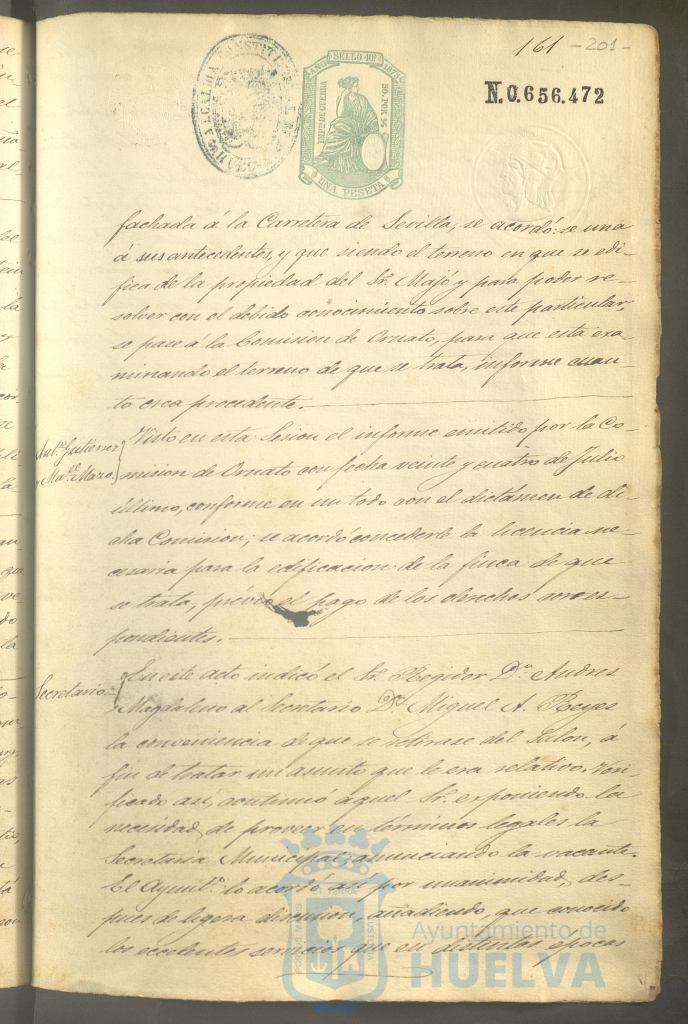 161 - 201 -
N.0.656.472
ALCALDIA CONSTIT
AÑO SELLO 10º 1875
IMPTO DE GUERRA
50. POR %
UNA PESETA
fachada á la Carretera de Sevilla, se acordó: se una
á sus antecedentes, y que siendo el terreno en que se edi-
fica de la propiedad del Sr. Majó y para poder re-
solver con el debido conocimiento sobre este particular,
se pase á la Comision de Ornato, para que esta exa-
minando el terreno de que se trata, informe cuan-
to crea procedente.
Antº Gutierrez
y Mazo.
Visto en esta Sesion el informe emitido por la Co-
mision de Ornato con fecha veinte y cuatro de Julio
último, conforme en un todo con el dictámen de di-
cha Comision; se acordó concederle la licencia ne-
cesaria para la edificacion de la finca de que
se trata, prévio el pago de los derechos corres-
pondientes.
Secretario
En este acto indicó el Sr. Regidor Dn. Andres
Magdaleno al Secretario Dn. Miguel A. Reyes
la conveniencia de que se retirase del Salon, á
fin de tratar un asunto que le era relativo. Veri-
ficado asi, continuó aquel Sr. exponiendo la
necesidad de proveer en términos legales la
Secretaria Municipal, anunciando la vacante.
El Ayuntº. lo acordó así por unanimidad, des-
pues de ligera discusion, añadiendo, que conocido
los excelentes servicios que en distintas epocas
Ayuntamiento de
HUELVA